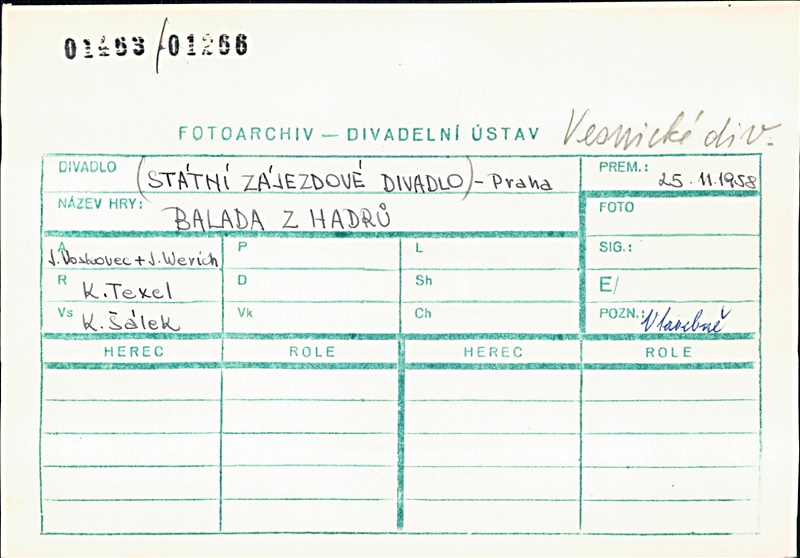 /01266
FOTOARCHIV — DIVADELNÍ ÚSTAV Vesnické div.
DIVADLO (STÁTNÍ ZÁJEZDOVÉ DIVADLO) - Praha
PREM.: 25.11.1958
NÁZEV HRY: BALADA Z HADRŮ
FOTO
A J. Voskovec + J. Werich P L
SIG.:
R K. Texel D Sh
E/
Vs K. Šálek Vk Ch
POZN.:
HEREC ROLE HEREC ROLE